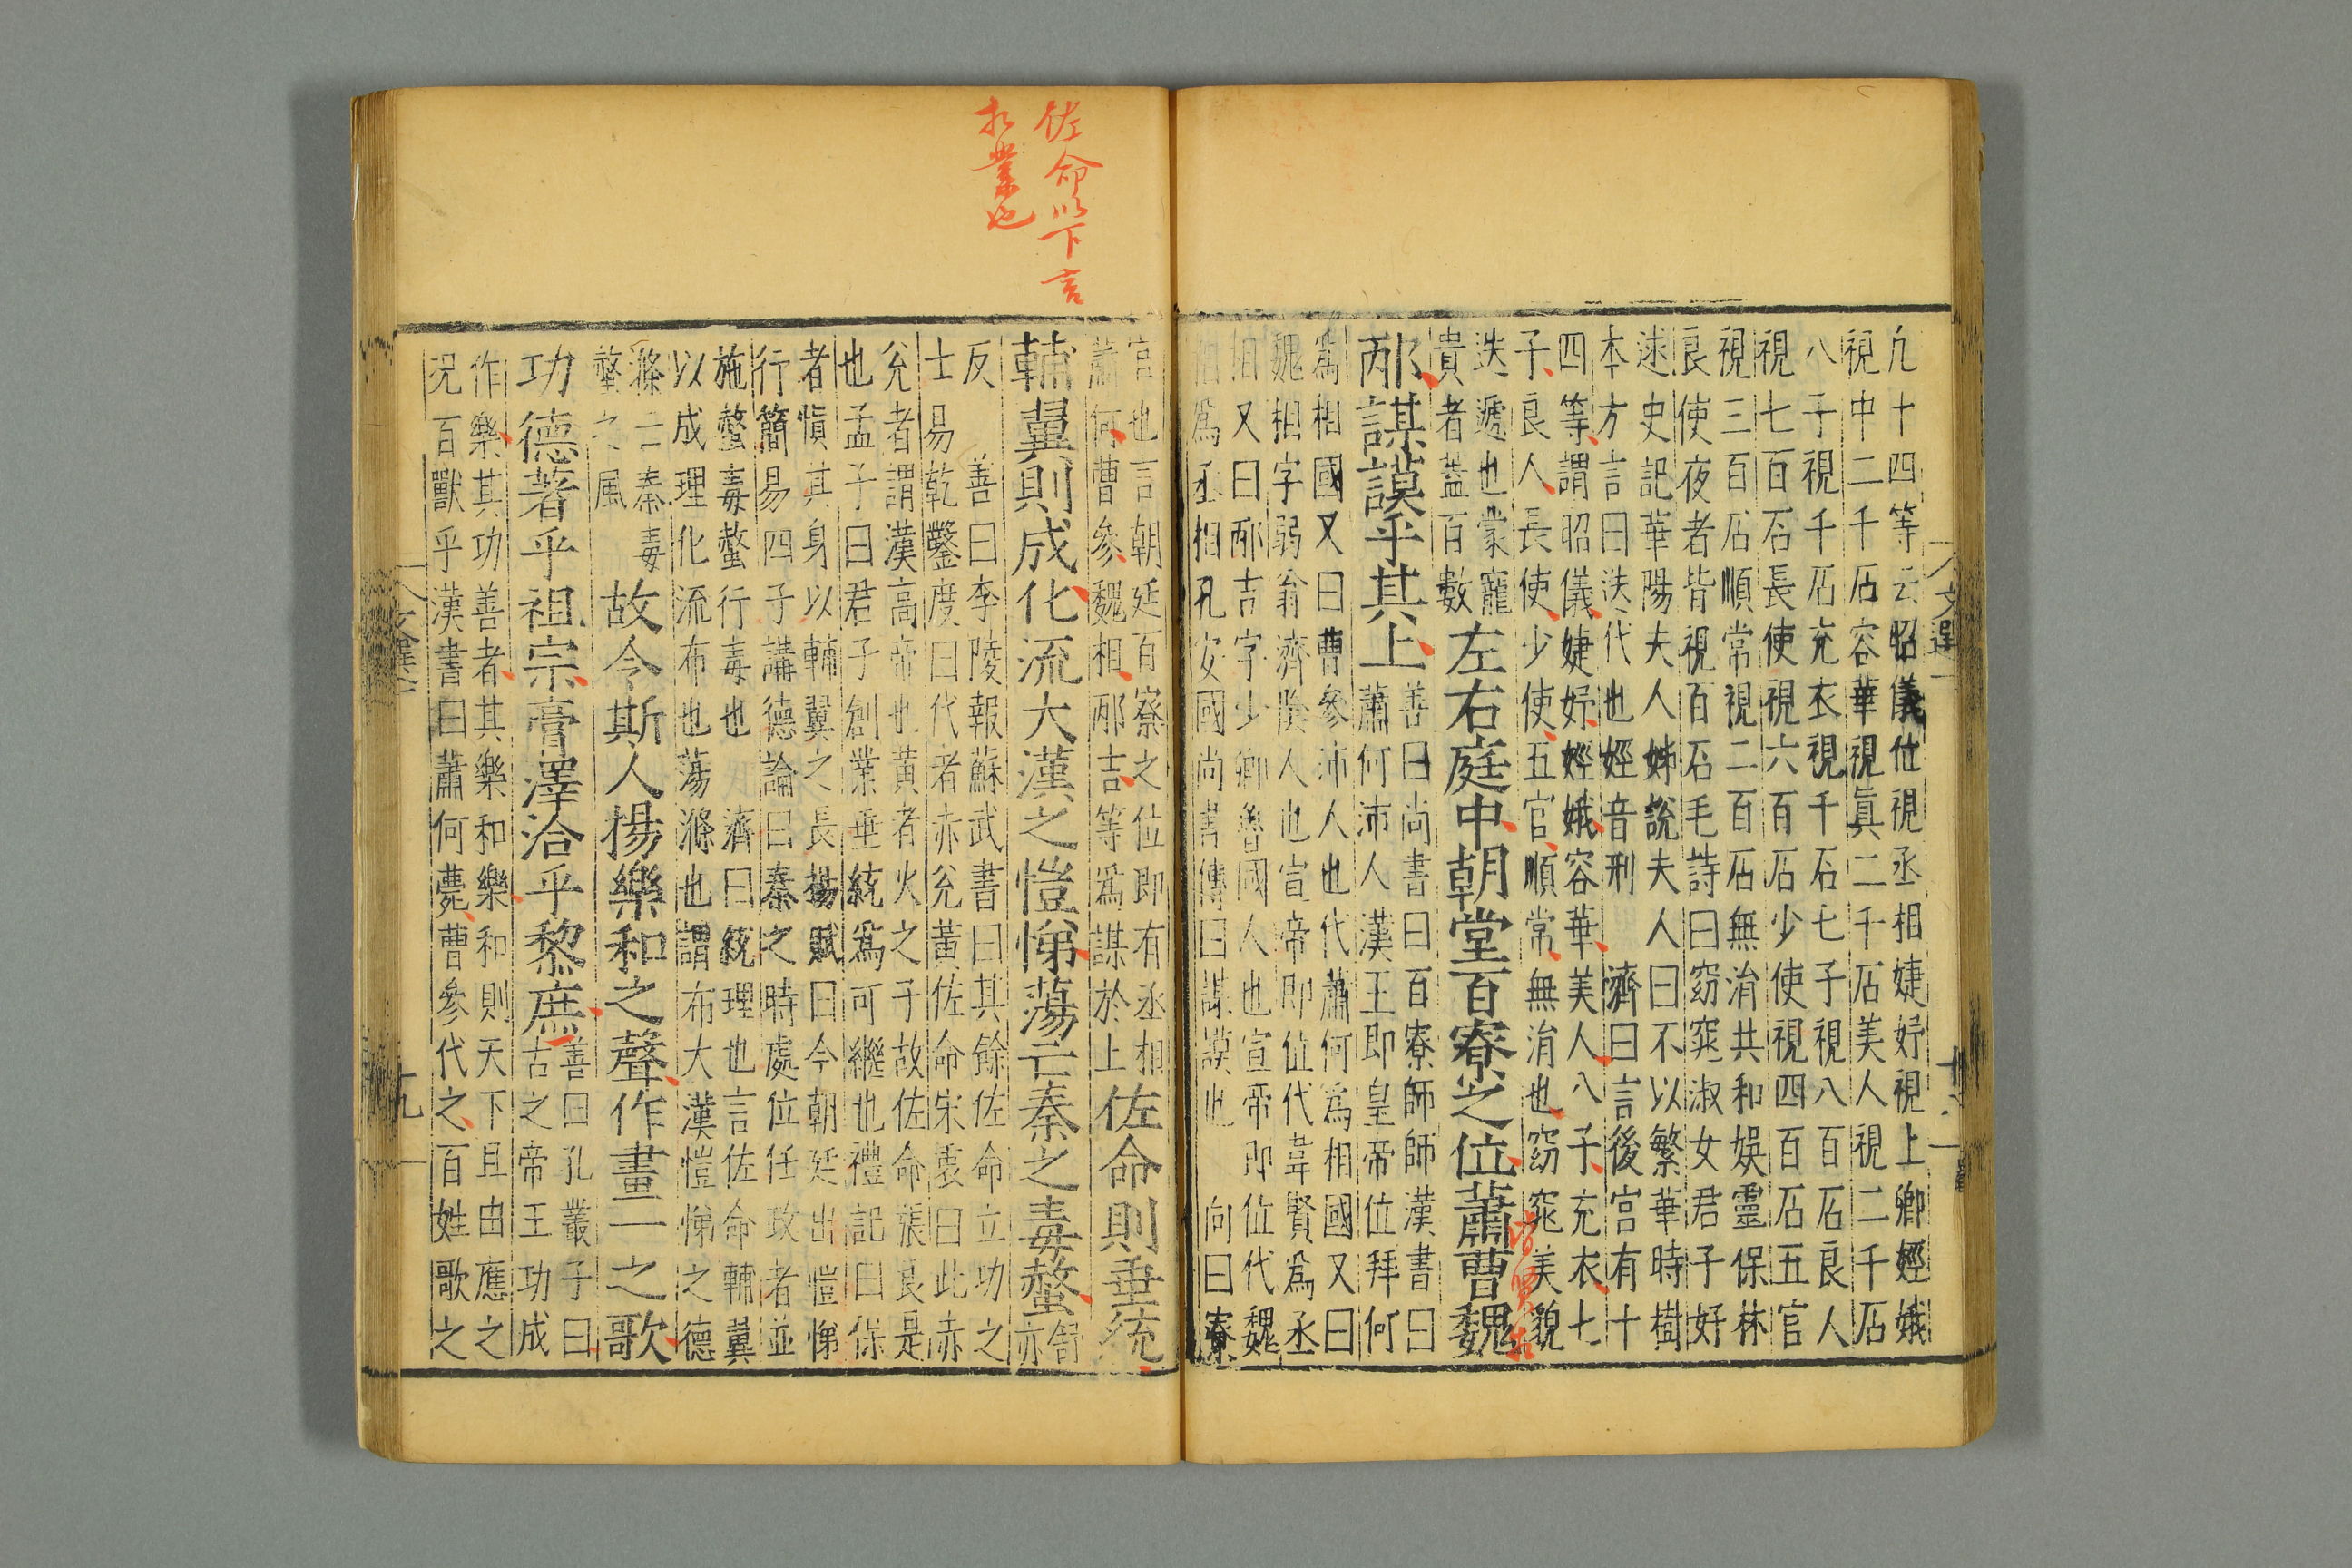 九十四等云昭儀位視丞相婕妤視上卿娙娥
視中二千石容華視眞二千石美人視二千石
八子視千石充衣視千石七子視八百石良人
視七百石長使視六百石少使視四百石五官
視三百石順常視二百石無涓共和娛靈保林
良使夜者皆視百石毛詩曰窈窕淑女君子好
逑史記華陽夫人姊說夫人曰不以繁華時樹
本方言曰迭代也娙音刑 濟曰言後宮有十
四等謂昭儀婕妤娙娥容華美人八子充衣七
子良人長使少使五官順常無涓也窈窕美貌
迭遞也蒙寵
貴者蓋百數
左右庭中朝堂百寮之位蕭曹魏
邴謀謨乎其上
善曰尚書曰百寮師師漢書曰
蕭何沛人漢王即皇帝位拜何
爲相國又曰曹參沛人也代蕭何爲相國又曰
魏相字弱翁濟陰人也宣帝即位代韋賢爲丞
相又曰邴吉字少卿魯國人也宣帝即位代魏
相爲丞相孔安國尚書傳曰謀謨也 向曰寮
文選一
十八
官也言朝廷百寮之位即有丞相
蕭何曹參魏相邴吉等爲謀於上
佐命則垂統
輔翼則成化流大漢之愷悌蕩亡秦之毒螫
舒
亦
反 善曰李陵報蘇武書曰其餘佐命立功之
士易乾鑿度曰代者赤兊黃佐命宋衷曰此赤
兊者謂漢高帝也黃者火之子故佐命張良是
也孟子曰君子創業垂統爲可繼也禮記曰保
者愼其身以輔翼之長楊賦曰今朝廷出愷悌
行簡易四子講德論曰秦之時處位任政者並
施螫毒螫行毒也 濟曰統理也言佐命輔翼
以成理化流布也蕩滌也謂布大漢愷悌之德
滌亡秦毒
螫之風
故令斯人揚樂和之聲作畫一之歌
功德著乎祖宗膏澤洽乎黎庶
善曰孔叢子曰
古之帝王功成
作樂其功善者其樂和樂和則天下且由應之
况百獸乎漢書曰蕭何薨曹參代之百姓歌之
十九
佐命以下言